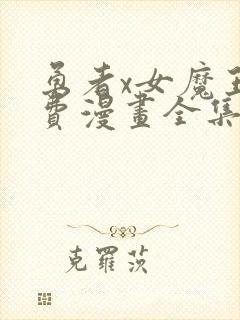 勇者x女魔王
費漫畫全集
克羅茨